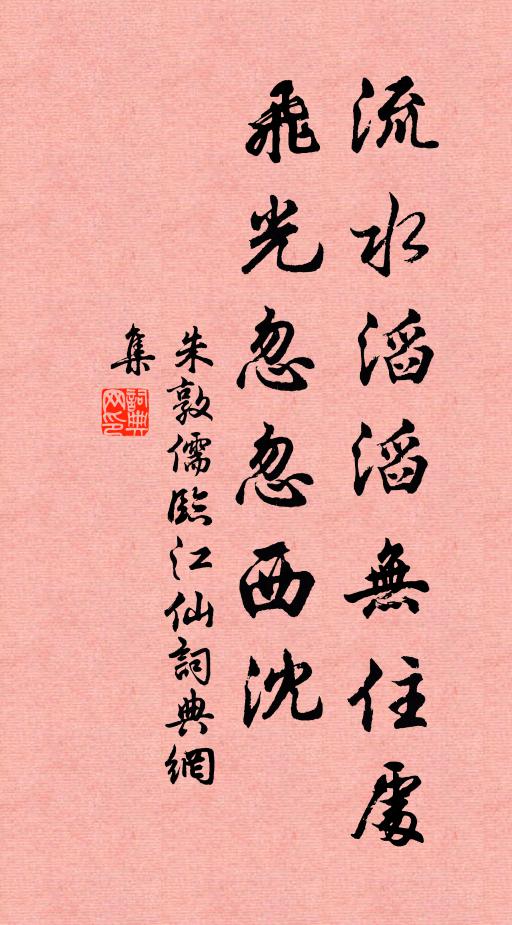 流水滔滔無住處
飛光忽忽西沈
朱敦儒臨江仙詞典網
集
詞典网印